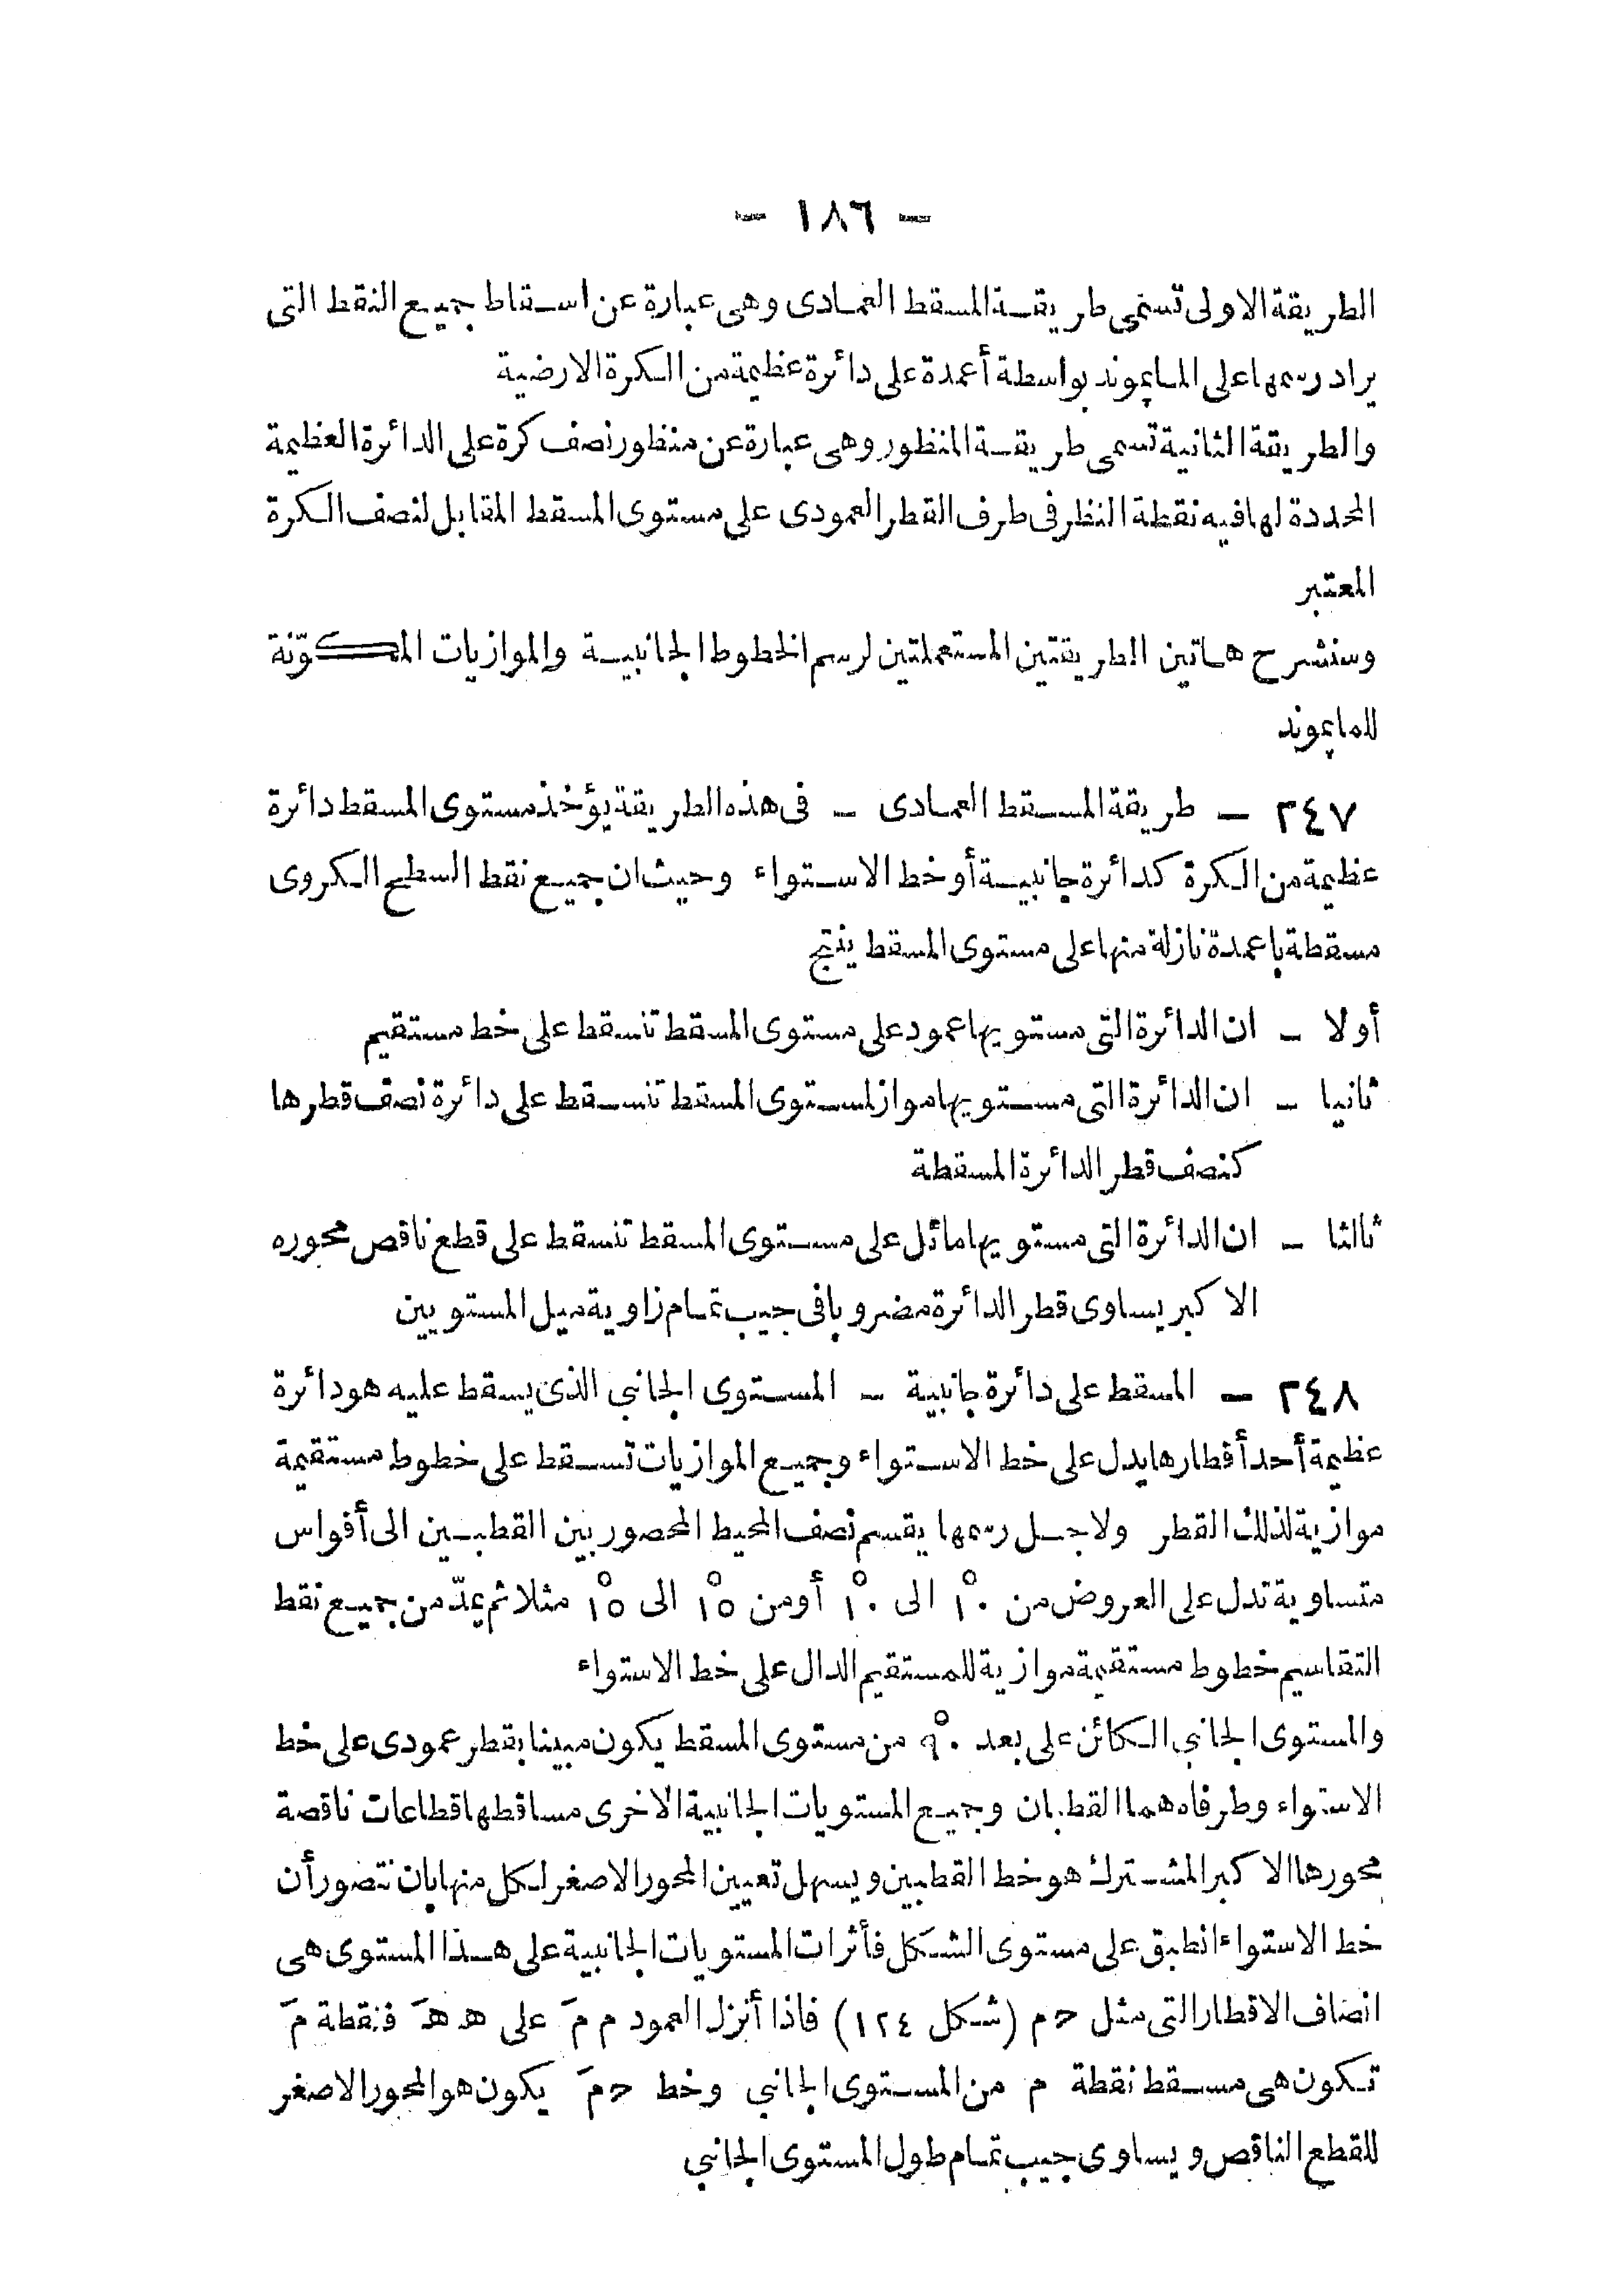 - ١٨٦ -
الطريقة الاولى تسمى طريقة المسقط العمادى وهى عبارة عن اسقاط جميع النقط التى
يراد رسمها على المابموند بواسطة أعمدة على دائرة عظيمة من الكرة الارضية
والطريقة الثانية تسمى طريقة المنظور وهى عبارة عن منظور نصف كرة على الدائرة العظيمة
المحددة لها فيه نقطة النظر فى طرف القطر العمودى على مستوى المسقط المقابل لنصف الكرة
المعتبر
وسنشرح هاتين الطريقتين المستعملتين لرسم الخطوط الجانبية والموازيات المكوّنة
للمابموند
٢٤٧ - طريقة المسقط العمادى - فى هذه الطريقة يؤخذ مستوى المسقط دائرة
عظيمة من الكرة كدائرة جانبية أو خط الاستواء وحيث ان جميع نقط السطح الكروى
مسقطة باعمدة نازلة منها على مستوى المسقط ينتج
أولا - ان الدائرة التى مستويها عمود على مستوى المسقط تنسقط على خط مستقيم
ثانيا - ان الدائرة التى مستويها مواز لمستوى المسقط تنسقط على دائرة نصف قطرها
كنصف قطر الدائرة المسقطة
ثالثا - ان الدائرة التى مستويها مائل على مستوى المسقط تنسقط على قطع ناقص محوره
الاكبر يساوى قطر الدائرة مضروبا فى جيب تمام زاوية ميل المستويين
٢٤٨ - المسقط على دائرة جانبية - المستوى الجانبى الذى يسقط عليه هو دائرة
عظيمة أحد أقطارها يدل على خط الاستواء وجميع الموازيات تسقط على خطوط مستقيمة
موازية لذلك القطر ولاجل رسمها يقسم نصف المحيط المحصور بين القطبين الى أقواس
متساوية تدل على العروض من ١٠° الى ١٠° أو من ١٥° الى ١٥° مثلا ثم يمدّ من جميع نقط
التقاسيم خطوط مستقيمة موازية للمستقيم الدال على خط الاستواء
والمستوى الجانبى الكائن على بعد ٩٠° من مستوى المسقط يكون مبينا بقطر عمودى على خط
الاستواء وطرفاه هما القطبان وجميع المستويات الجانبية الاخرى مساقطها قطاعات ناقصة
محورها الاكبر المشترك هو خط القطبين ويسهل تعيين المحور الاصغر لكل منها بان نتصور أن
خط الاستواء انطبق على مستوى الشكل فأثرات المستويات الجانبية على هذا المستوى هى
انصاف الاقطار التى مثل حم (شكل ١٢٤) فاذا أنزل العمود م مَ على ه هَ فنقطة مَ
تكون هى مسقط نقطة م من المستوى الجانبى وخط حمَ يكون هو المحور الاصغر
للقطع الناقص ويساوى جيب تمام طول المستوى الجانبى